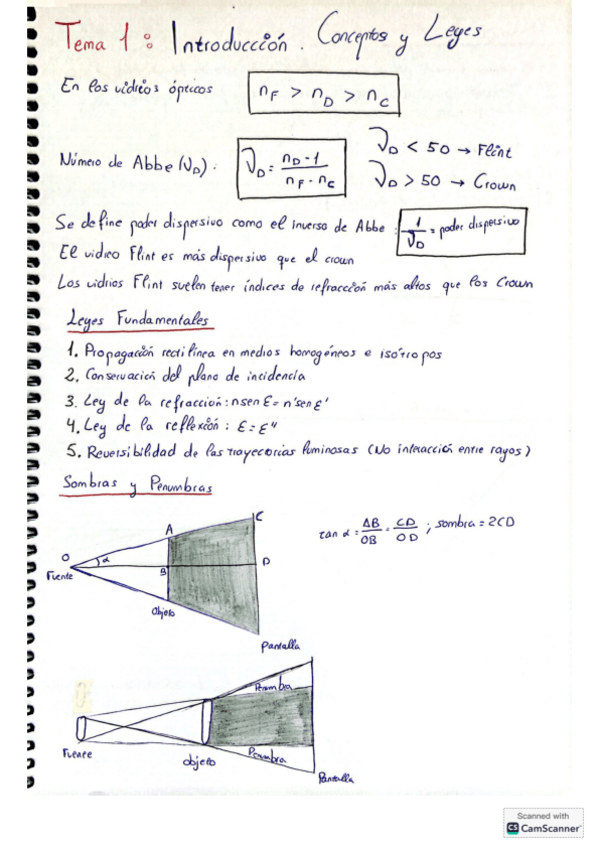 Tema 1: Introduccción. Conceptos y Leyes
En los vidrios ópticos
n_F > n_D > n_C
Número de Abbe (ν_D): ν_D = (n_D - 1)/(n_F - n_C)
ν_D < 50 → Flint
ν_D > 50 → Crown
Se define poder dispersivo como el inverso de Abbe: 1/ν_D = poder dispersivo
El vidrio Flint es más dispersivo que el crown
Los vidrios Flint suelen tener índices de refraccción más altos que los Crown
Leyes Fundamentales
1. Propagacción rectilínea en medios homogéneos e isótropos
2. Conservación del plano de incidencia
3. Ley de la refracción: n sen ε = n' sen ε'
4. Ley de la reflexión: ε = ε"
5. Reversibilidad de las trayectorias luminosas (No interacción entre rayos)
Sombras y Penumbras
tan α = AB/OB = CD/OD ; sombra = 2CD
C
A
O
α
B
D
Fuente
Objeto
Pantalla
Penumbra
Fuente
Objeto
Penumbra
Pantalla
Scanned with
CS CamScanner